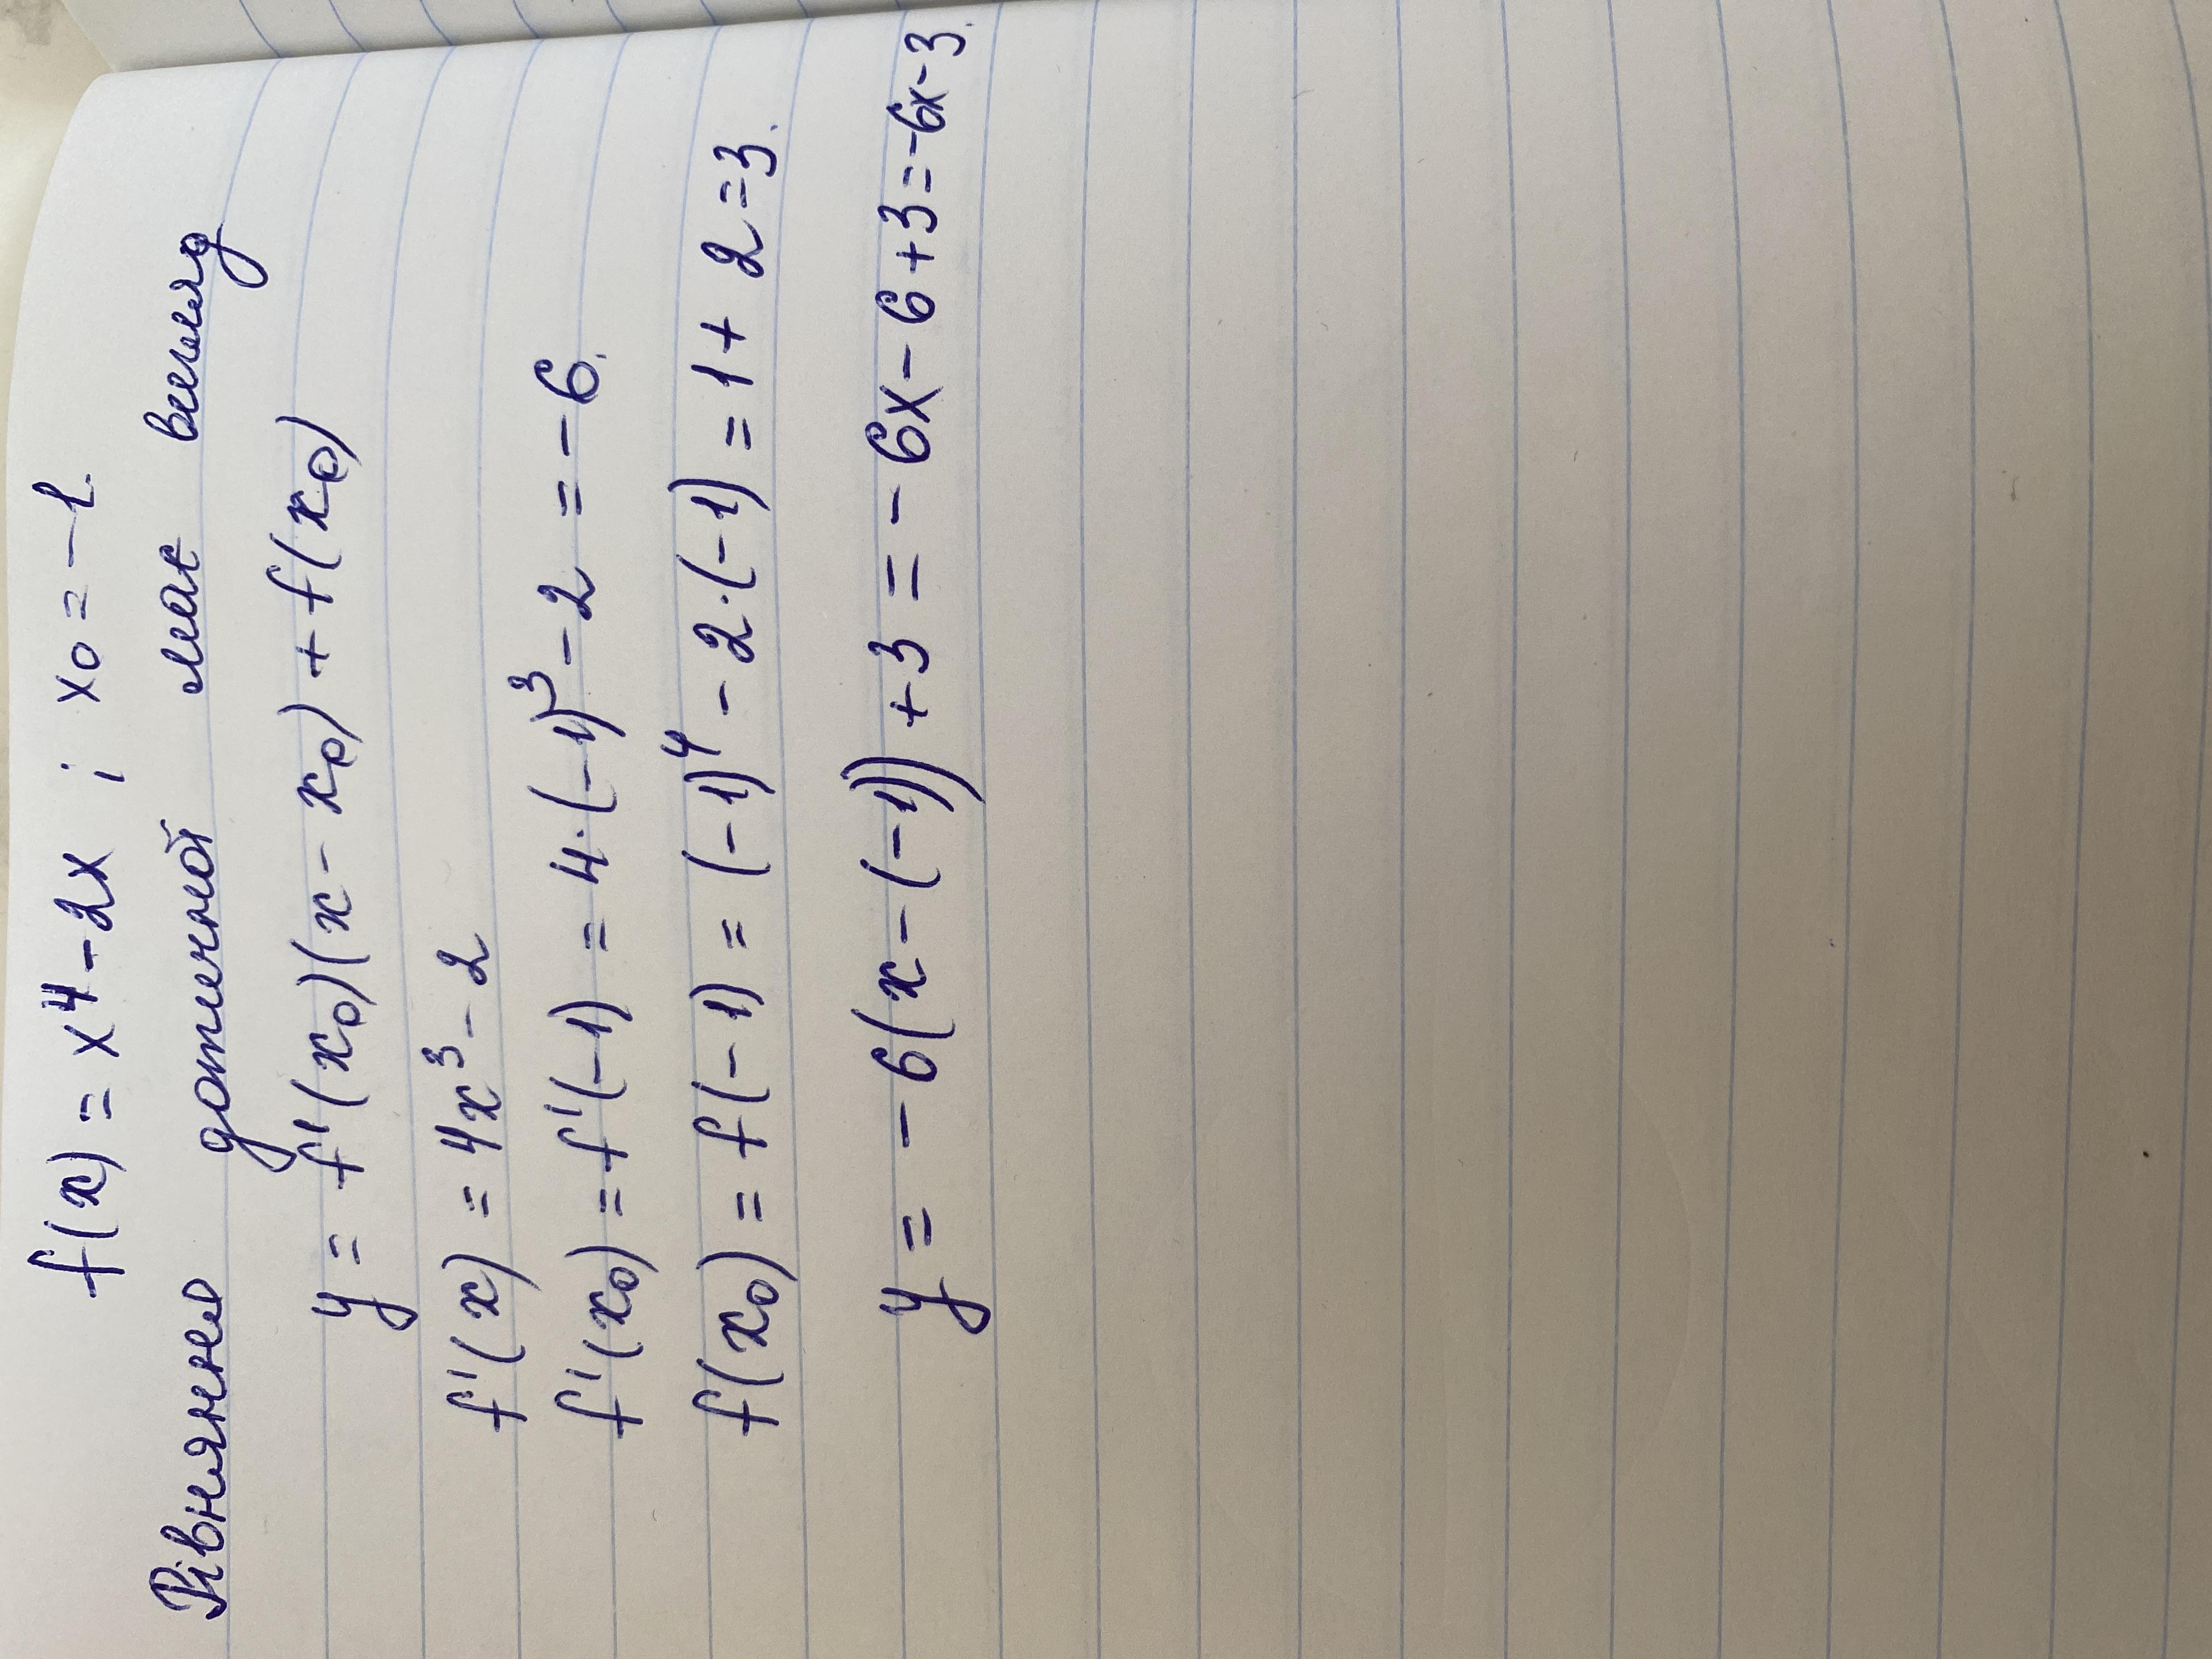 f(x) = x⁴ - 2x ; x₀ = -1.
Рівняння дотичної має вигляд
y = f'(x₀)(x - x₀) + f(x₀)
f'(x) = 4x³ - 2
f'(x₀) = f'(-1) = 4·(-1)³ - 2 = -6.
f(x₀) = f(-1) = (-1)⁴ - 2·(-1) = 1 + 2 = 3.
y = -6(x - (-1)) + 3 = -6x - 6 + 3 = -6x - 3.